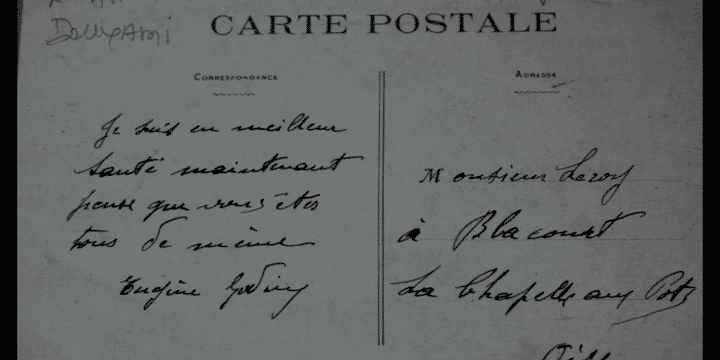 DouxAmi
CARTE POSTALE
CORRESPONDANCE
Je suis en meilleur
santé maintenant
pense que vous êtes
tous de même
Eugène Godin
ADRESSE
Monsieur Leroy
à Blacourt
La Chapelle aux Pots
Oise